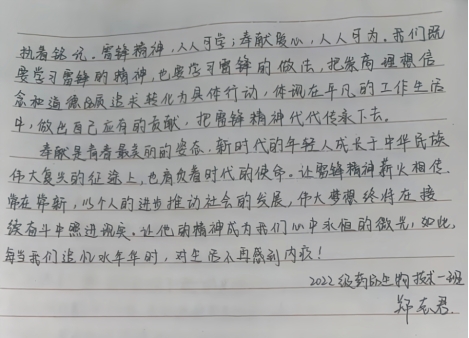 执着铭记。雷锋精神，人人可学；奉献爱心，人人可为。我们既
要学习雷锋的精神，也要学习雷锋的做法，把崇高理想信
念和道德品质追求转化为具体行动，体现在平凡的工作生活
中，做出自己应有的贡献，把雷锋精神代代传承下去。
奉献是青春最美丽的姿态，新时代的年轻人成长于中华民族
伟大复兴的征途上，也肩负着时代的使命。让雷锋精神薪火相传
常在常新，以个人的进步推动社会的发展，伟大梦想终将在接
续奋斗中照进现实。让他的精神成为我们心中永恒的微光，如此，
每当我们追忆似水年华时，对生活不再感到内疚！
2022级药品生物技术一班
郑志君